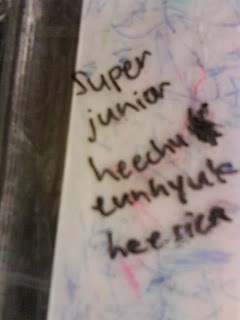 Super
junior
heechul
eunhyuk
heesica